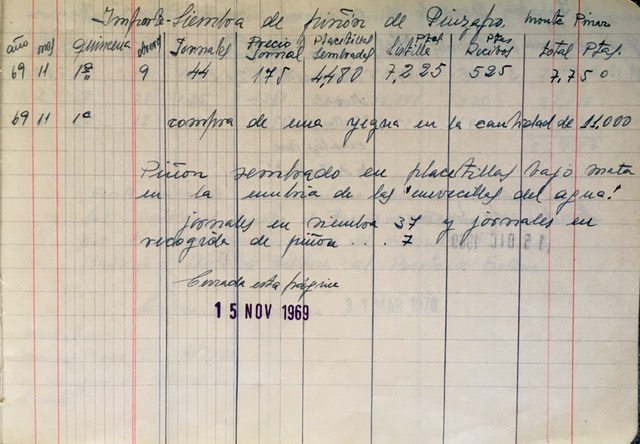 Importe Siembra de piñón de Pinzapo. monte Pinar
año mes quincena obreros Jornales Precio Jornal Placetillas Sembradas Listilla Ptas Ptas Recibos total Ptas.
69 11 1ª 9 44 175 4,480 7,225 525 7,750
69 11 1ª compra de una yegua en la cantidad de 11,000
Piñon sembrado en placetillas bajo mata
en la umbria de las "cuevecillas del agua"
jornales en siembra 37 y jornales en
recogida de piñon ... 7
Cerrada esta página
15 NOV 1969